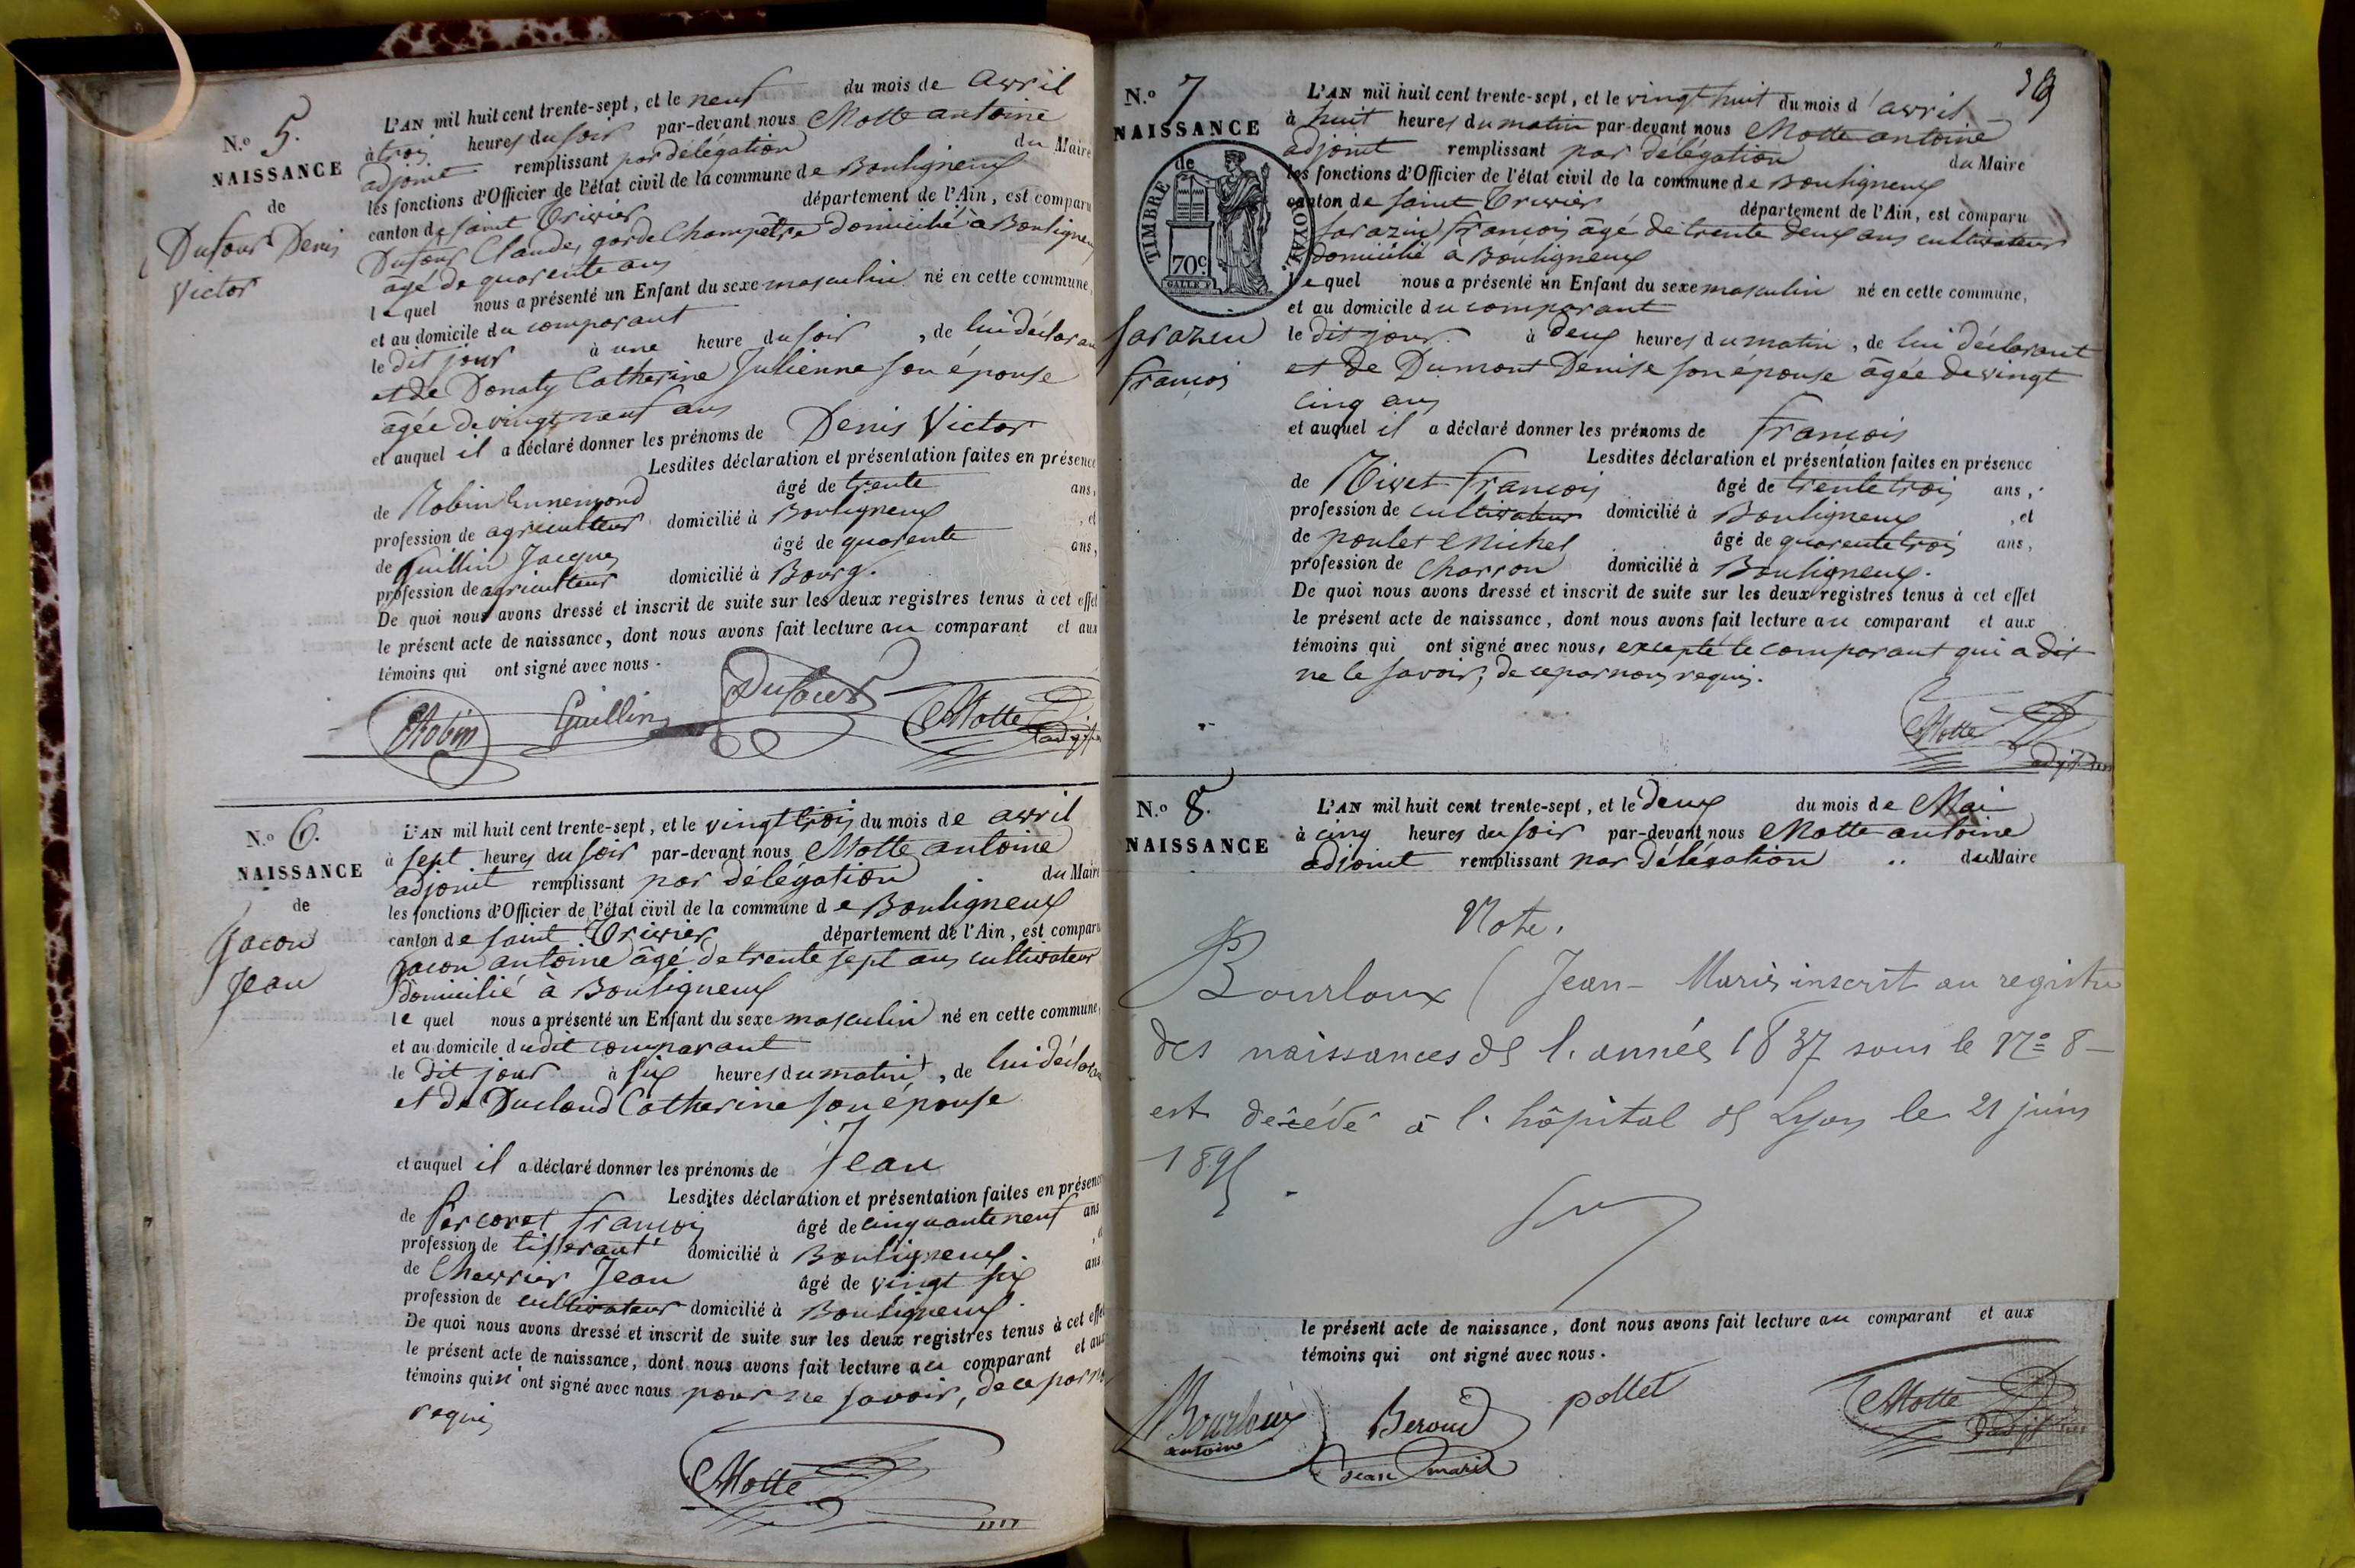 N.º 5.
NAISSANCE
de
Dufour Denis
Victor
L'AN mil huit cent trente-sept, et le neuf du mois de avril
à trois heures du soir par-devant nous Motte antoine
adjoint remplissant par délégation du Maire
les fonctions d'Officier de l'état civil de la commune de Bouligneux
canton de saint Trivier département de l'Ain, est comparu
Dufour Claude, garde Champêtre domicilié à Bouligneux
âgé de quarente ans
lequel nous a présenté un Enfant du sexe masculin né en cette commune,
et au domicile du comparant
le dit jour à une heure du soir, de lui déclarant
et de Donaty Catherine Julienne son épouse
âgée de vingt neuf ans
et auquel il a déclaré donner les prénoms de Denis Victor
Lesdites déclaration et présentation faites en présence
de Robin Ennemond âgé de trente ans,
profession de agriculteur domicilié à Bouligneux, et
de Guillin Jacques âgé de quarente ans,
profession de agriculteur domicilié à Bourg.
De quoi nous avons dressé et inscrit de suite sur les deux registres tenus à cet effet
le présent acte de naissance, dont nous avons fait lecture au comparant et aux
témoins qui ont signé avec nous.
Robin Guillin Dufour Motte adjt
N.º 6.
NAISSANCE
de
Jacon
Jean
L'AN mil huit cent trente-sept, et le vingt trois du mois de avril
à sept heures du soir par-devant nous Motte antoine
adjoint remplissant par délégation du Maire
les fonctions d'Officier de l'état civil de la commune de Bouligneux
canton de saint Trivier département de l'Ain, est comparu
Jacon antoine âgé de trente sept ans cultivateur
domicilié à Bouligneux
lequel nous a présenté un Enfant du sexe masculin né en cette commune,
et au domicile dudit comparant
le dit jour à six heures du matin, de lui déclarant
et de Ducloud Catherine son épouse
et auquel il a déclaré donner les prénoms de Jean
Lesdites déclaration et présentation faites en présence
de Percoret François âgé de cinquante neuf ans
profession de tisserant domicilié à Bouligneux.
de Cherrier Jean âgé de vingt six ans
profession de cultivateur domicilié à Bouligneux.
De quoi nous avons dressé et inscrit de suite sur les deux registres tenus à cet effet
le présent acte de naissance, dont nous avons fait lecture au comparant et aux
témoins qui n'ont signé avec nous pour ne savoir, de ce par nous
requis
Motte
39
N.º 7
NAISSANCE
de
TIMBRE ROYAL.
70c.
Sarazin
François
L'AN mil huit cent trente-sept, et le vingt huit du mois d'avril
à huit heures du matin par-devant nous Motte antoine
adjoint remplissant par délégation du Maire
les fonctions d'Officier de l'état civil de la commune de Bouligneux
canton de saint Trivier département de l'Ain, est comparu
Sarazin François âgé de trente deux ans cultivateur
domicilié à Bouligneux
lequel nous a présenté un Enfant du sexe masculin né en cette commune,
et au domicile du comparant
le dit jour. à deux heures du matin, de lui déclarant
et de Dumont Denise son épouse âgée de vingt
cinq ans
et auquel il a déclaré donner les prénoms de François
Lesdites déclaration et présentation faites en présence
de Nivet François âgé de trente trois ans,
profession de cultivateur domicilié à Bouligneux, et
de poulet Michel âgé de quarente trois ans,
profession de Charron domicilié à Bouligneux.
De quoi nous avons dressé et inscrit de suite sur les deux registres tenus à cet effet
le présent acte de naissance, dont nous avons fait lecture au comparant et aux
témoins qui ont signé avec nous, excepté le comparant qui a dit
ne le savoir, de ce par nous requis.
Motte adjt
N.º 8.
NAISSANCE
L'AN mil huit cent trente-sept, et le deux du mois de Mai
à cinq heures du soir par-devant nous Motte antoine
adjoint remplissant par délégation du Maire
Note.
Bourloux (Jean-Marie inscrit au registre
des naissances de l'année 1837 sous le Nº 8-
est décédé à l'hôpital de Lyon le 21 juin
1895.
le présent acte de naissance, dont nous avons fait lecture au comparant et aux
témoins qui ont signé avec nous.
Bourloux antoine Beroud Jean marie pollet Motte adjt